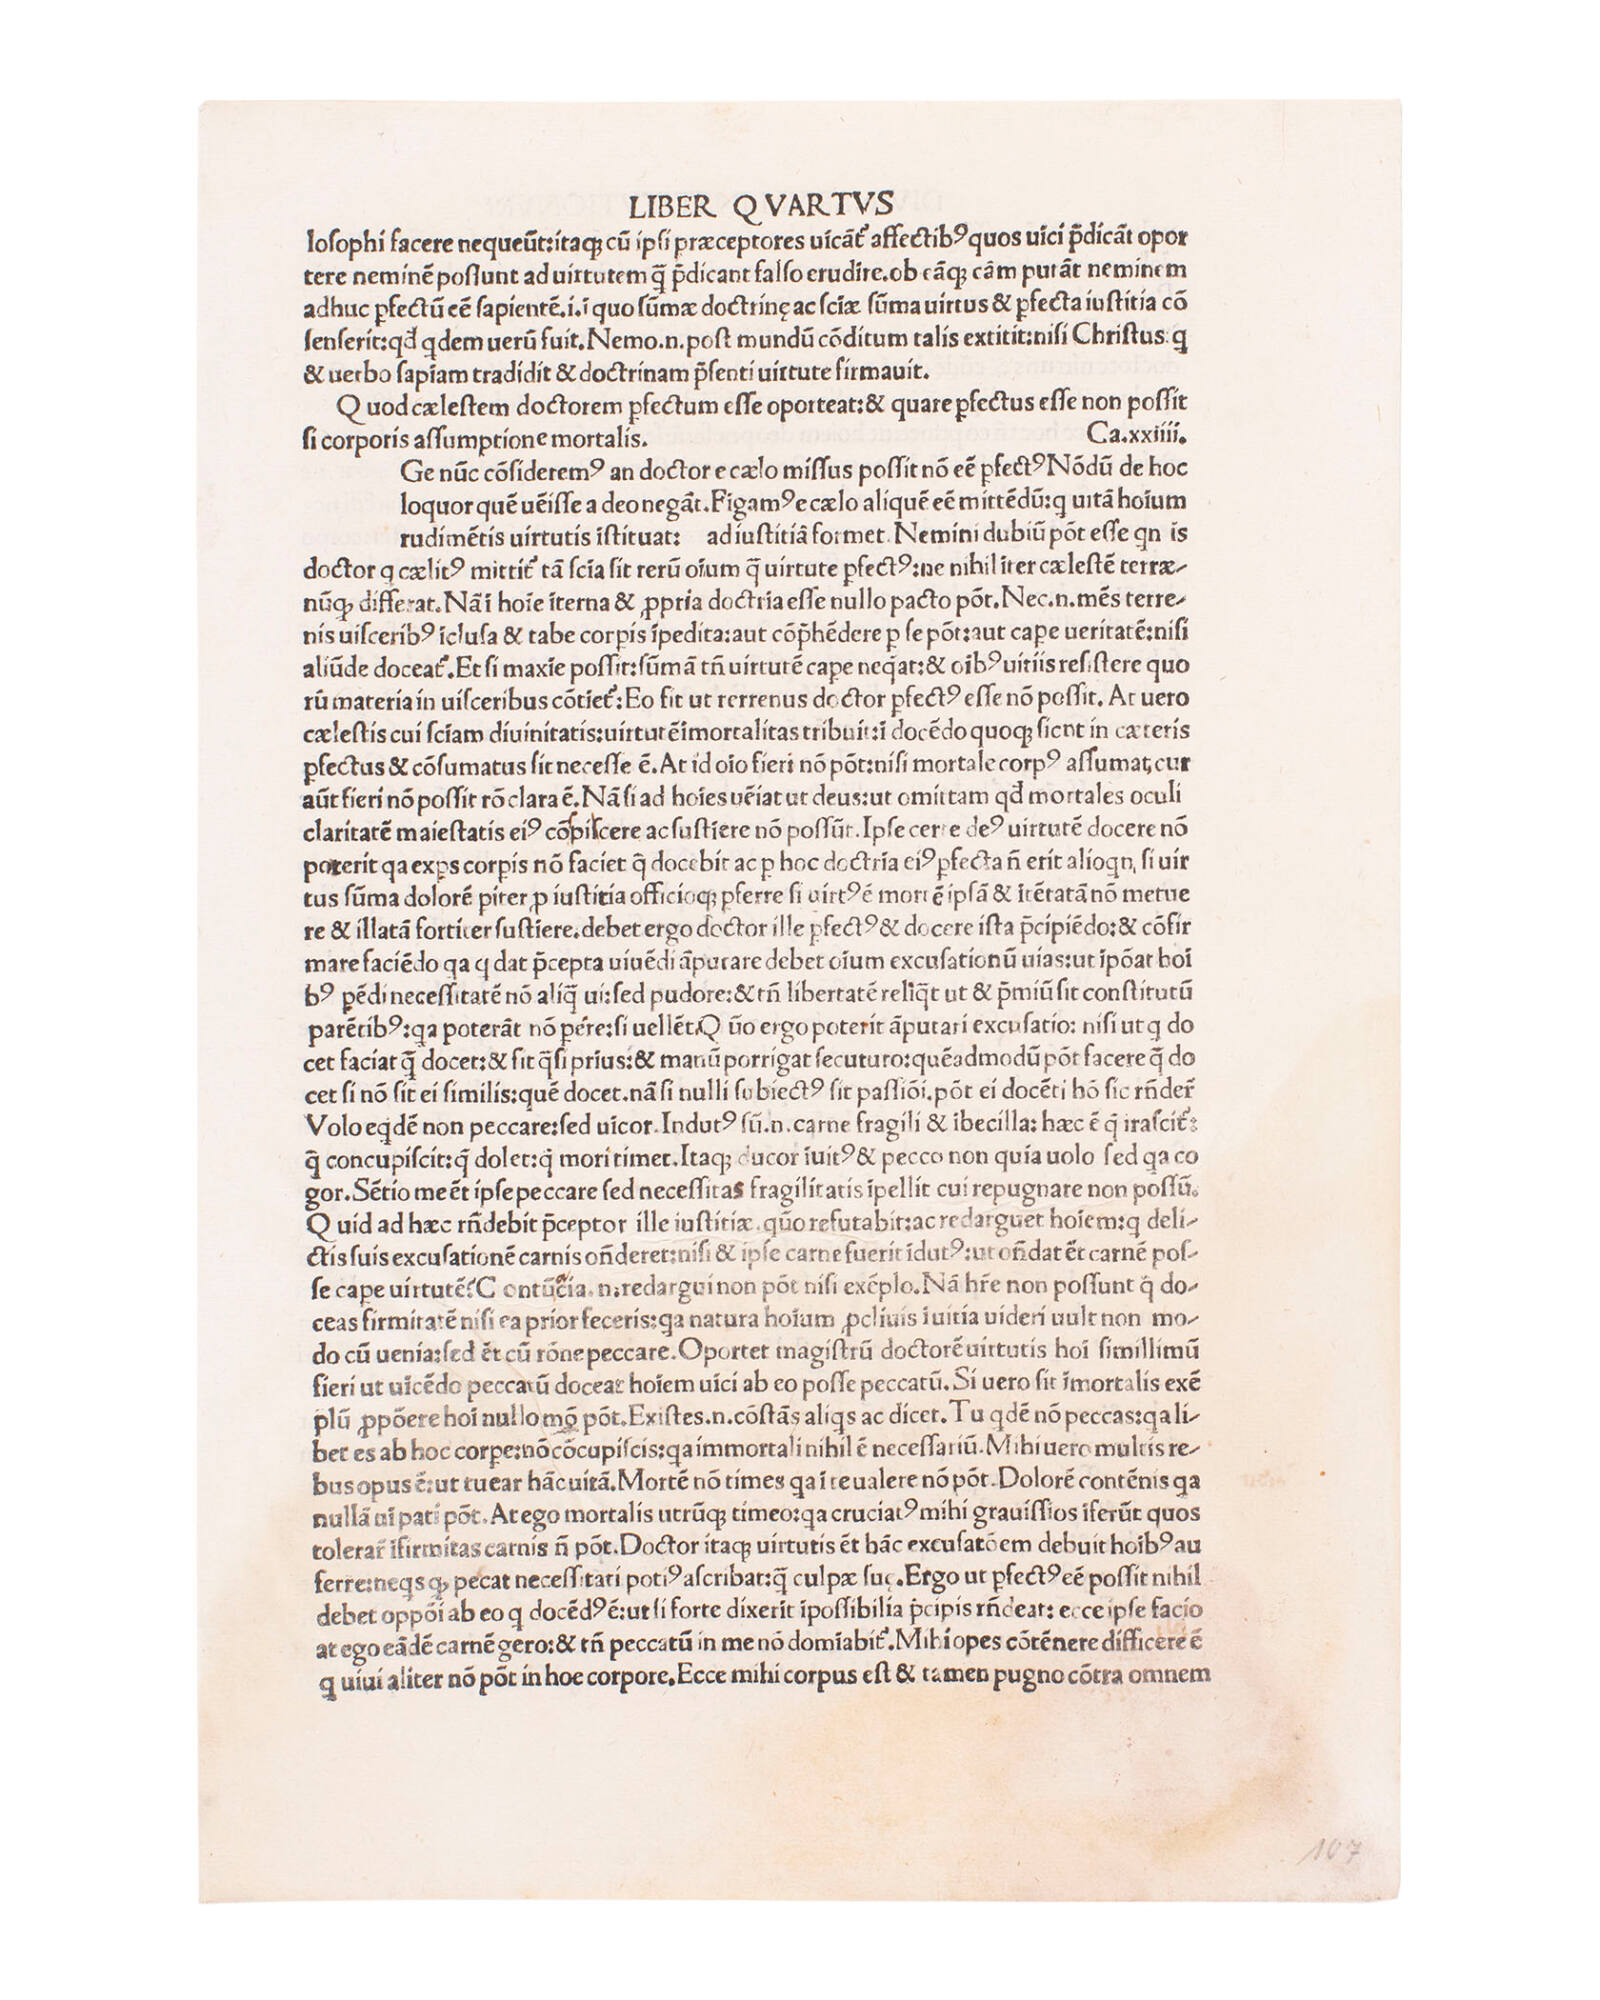 LIBER QVARTVS
losophi facere nequeūt:itaqꝫ cū ipsi præceptores uicāt᷑ affectibꝰ quos uici p̄dicāt opor
tere neminē possunt ad uirtutem q̄ p̄dicant falso erudire.ob eāqꝫ cām putāt neminem
adhuc ꝑfectū eē sapientē.i.ī quo sūmæ doctrinę ac sciæ sūma uirtus & ꝑfecta iustitia cō
senserit:qđ qdem uerū fuit.Nemo.n.post mundū cōditum talis extitit:nisi Christus q
& uerbo sapiam tradidit & doctrinam p̄senti uirtute firmauit.
Quod cælestem doctorem ꝑfectum esse oporteat:& quare ꝑfectus esse non possit
si corporis assumptione mortalis. Ca.xxiiii.
Ge nūc cōsideremꝰ an doctor e cælo missus possit nō eē ꝑfectꝰ Nōdū de hoc
loquor quē uēisse a deo negāt.Figamꝰ e cælo aliquē eē mittēdū:q uitā hoium
rudimētis uirtutis īstituat: ad iustitiā formet.Nemini dubiū pōt esse qn is
doctor q cælitꝰ mittit᷑ tā scīa sit rerū oīum q̄ uirtute ꝑfectꝰ:ne nihil īter cælestē terræ-
nūqꝫ differat.Nā ī hoie īterna & ꝓpria doctria esse nullo pacto pōt.Nec.n.mēs terre-
nis uisceribꝰ īclusa & tabe corpis īpedita:aut cōp̄hēdere ꝑ se pōt:aut cape ueritatē:nisi
aliūde doceat᷑.Et si maxīe possit:sūmā tn̄ uirtutē cape neqat:& oībꝰ uitiis resistere quo
rū materia in uisceribus cōtiet᷑:Eo fit ut terrenus doctor ꝑfectꝰ esse nō possit.At uero
cælestis cui sciam diuinitatis:uirtutē īmortalitas tribuit:ī docēdo quoqꝫ sicut in cæteris
ꝑfectus & cōsumatus sit necesse ē.At id oīo fieri nō pōt:nisi mortale corpꝰ assumat,cur
aūt fieri nō possit rō clara ē.Nā si ad hoies uēiat ut deus:ut omittam qđ mortales oculi
claritatē maiestatis eiꝰ cōspicere ac sustīere nō possūt.Ipse certe deꝰ uirtutē docere nō
poterit qa exps corpis nō faciet q̄ docebit ac ꝑ hoc doctria eiꝰ ꝑfecta n̄ erit alioqn,si uir
tus sūma dolorē piter ꝓ iustitia officioqꝫ ꝑferre si uirtꝰ ē mortē ipsā & ītētatā nō metue
re & illatā fortiter sustīere.debet ergo doctor ille ꝑfectꝰ & docere ista p̄cipiēdo:& cōfir
mare faciēdo qa q dat p̄cepta uiuēdi āputare debet oīum excusationū uias:ut īpōat hoi
bꝰ pēdi necessitatē nō aliq̄ ui:sed pudore:& tn̄ libertatē reliqt ut & p̄miū sit constitutū
parētibꝰ:qa poterāt nō pēre:si uellēt.Quō ergo poterit āputari excusatio: nisi ut q do
cet faciat q̄ docet:& sit q̄si prius:& manū porrigat secuturo:quēadmodū pōt facere q̄ do
cet si nō sit ei similis:quē docet.nā si nulli subiectꝰ sit passiōi.pōt ei docēti hō sic rn̄der᷑
Volo eqdē non peccare:sed uicor.Indutꝰ sū.n.carne fragili & ībecilla: hæc ē q̄ irascit᷑:
q̄ concupiscit:q̄ dolet:q̄ mori timet.Itaqꝫ ducor īuitꝰ & pecco non quia uolo sed qa co
gor.Sētio me ēt ipse peccare sed necessitas fragilitatis īpellit cui repugnare non possū.
Quid ad hæc rn̄debit p̄ceptor ille iustitiæ.quō refutabit:ac redarguet hoiem:q deli-
ctis suis excusationē carnis on̄deret:nisi & ipse carne fuerit īdutꝰ:ut on̄dat ēt carnē pos-
se cape uirtutē?Contūacia.n:redargui non pōt nisi exēplo.Nā hr̄e non possunt q̄ do-
ceas firmitatē nisi ea prior feceris:qa natura hoium ꝓcliuis ī uitia uideri uult non mo-
do cū uenia:sed ēt cū rōne peccare.Oportet magistrū doctorē uirtutis hoi simillimū
fieri ut uicēdo peccatū doceat hoiem uici ab eo posse peccatū.Si uero sit īmortalis exē
plū ꝓpōere hoi nullo mō pōt.Existes.n.cōstās aliqs ac dicet.Tu qdē nō peccas:qa li-
ber es ab hoc corpe:nō cōcupiscis:qa immortali nihil ē necessariū.Mihi uero multis re-
bus opus ē:ut tuear hāc uitā.Mortē nō times qa ī te ualere nō pōt.Dolorē contēnis qa
nullā uī pati pōt.At ego mortalis utrūqꝫ timeo:qa cruciatꝰ mihi grauissios īferūt quos
tolerar᷑ īfirmitas carnis n̄ pōt.Doctor itaqꝫ uirtutis ēt hāc excusatōem debuit hoibꝰ au
ferre:neqs qꝫ peccat necessitati potiꝰ ascribat:q̄ culpæ suę.Ergo ut ꝑfectꝰ eē possit nihil
debet oppōi ab eo q docēdꝰ ē:ut si forte dixerit īpossibilia p̄cipis rn̄deat: ecce ipse facio
at ego eādē carnē gero:& tn̄ peccatū in me nō domiabit᷑.Mihi opes cōtēnere difficere ē
q uiui aliter nō pōt in hoc corpore.Ecce mihi corpus est & tamen pugno cōtra omnem
107